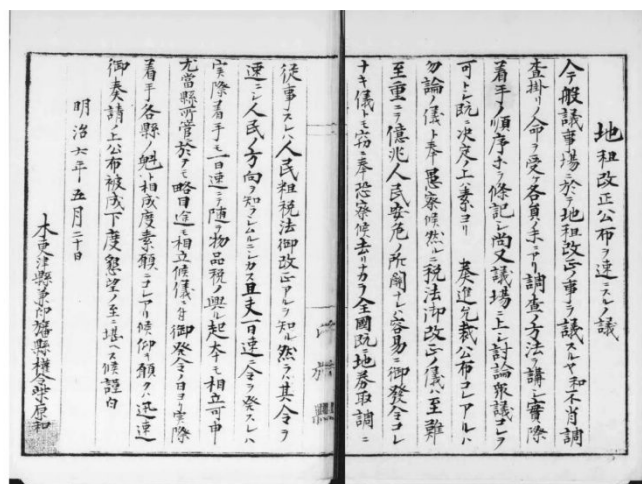 地租改正公布ヲ速ニスルノ議
今般議事場ニ於テ地租改正ノ事ヲラ議スルヤ和不肖調
査掛リノ命ヲ受ケ各員ノ手ニアリ調査ノ方法ヲ講シ実際
着手ノ順序ホヲ條記シ尚又議場ニ上シ討論衆議コレヲ
可トシ既ニ次度上ハ素ヨリ 奏進允裁公布コレアルハ
勿論ノ儀ト奉恐察候然ルニ税法御改正ノ儀ハ至難
至重ニテ億兆人民安危ノ所関ナレハ容易ニ御発令コレ
ナキ儀トモ竊ニ奉恐察候去リナカラ全國既ニ地券取調ニ
従事スレハ人民粗税法御改正アルヲ知ル然ラハ其令ヲ
速ニシ人民ノ方向ヲ知ラシムルニシカス且又一日速ニ令ヲ発スレハ
実際着手モ一日速ニテ随テ物品税ノ興ル起本モ相立可申
尤當縣所管於テモ略目途モ相立候儀ニ付御発令ノ日ヨリ実際
着手各縣ノ魁ト相成度素願ニコレアリ候仰キ願クハ迅速
御奏請ノ上公布被成下度懇望ノ至ニ堪ヘス候謹白
明治六年五月二十日
木更津縣兼印旛縣權令柴原和